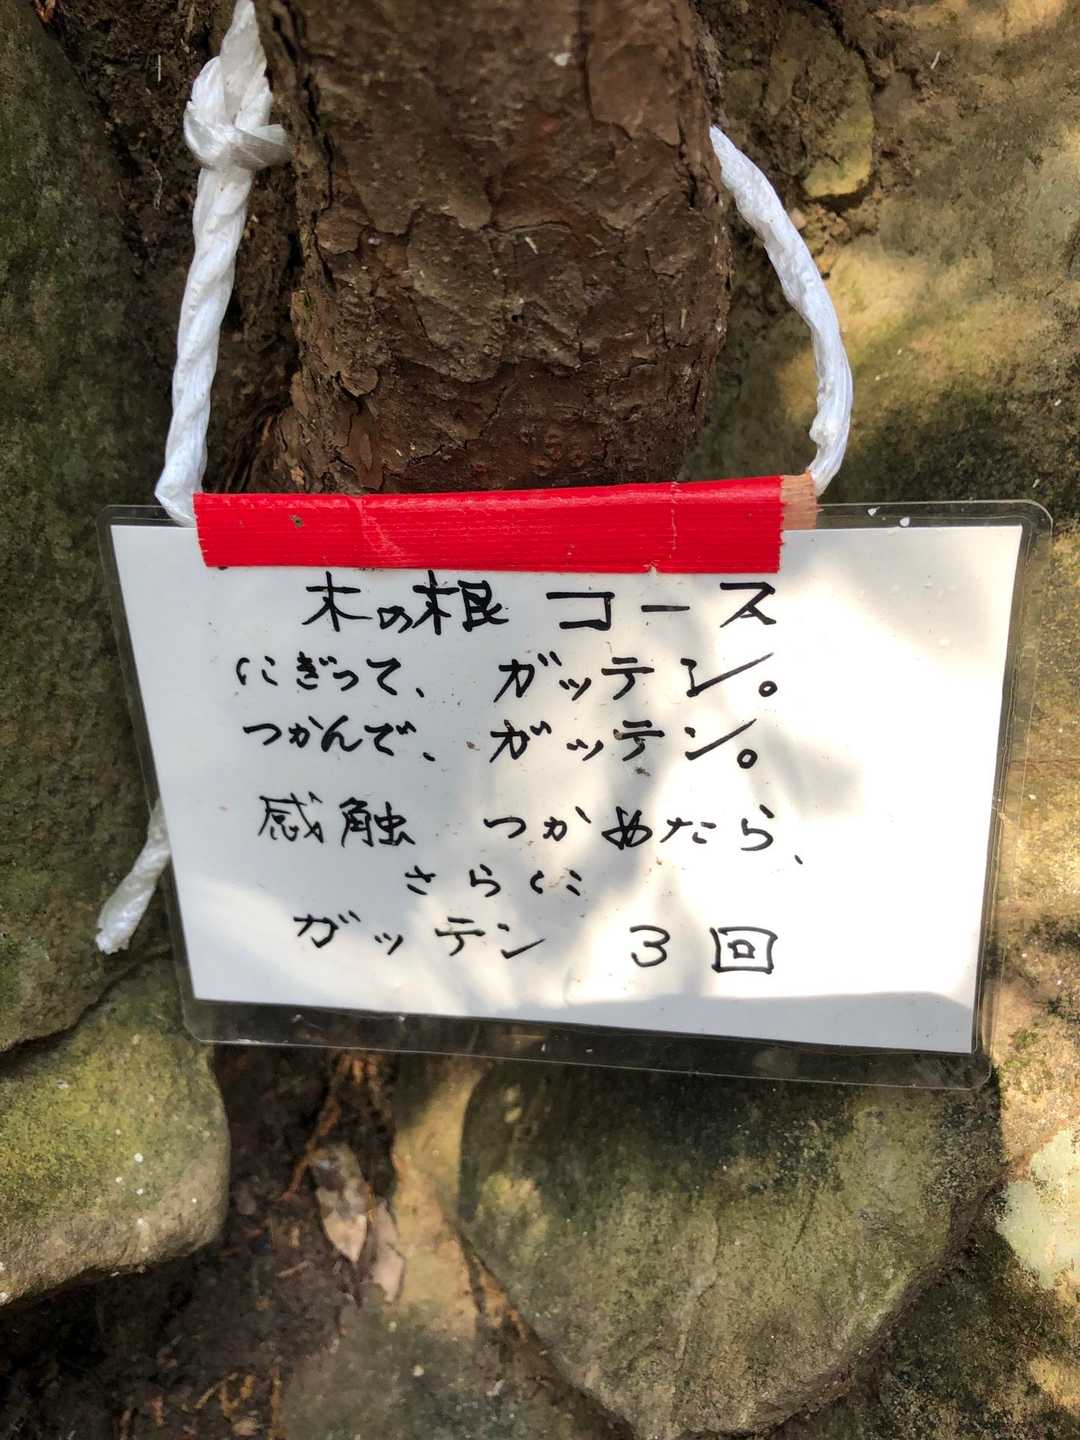 木の根 コース
にぎって、ガッテン。
つかんで、ガッテン。
感触 つかめたら、
さらに
ガッテン 3回